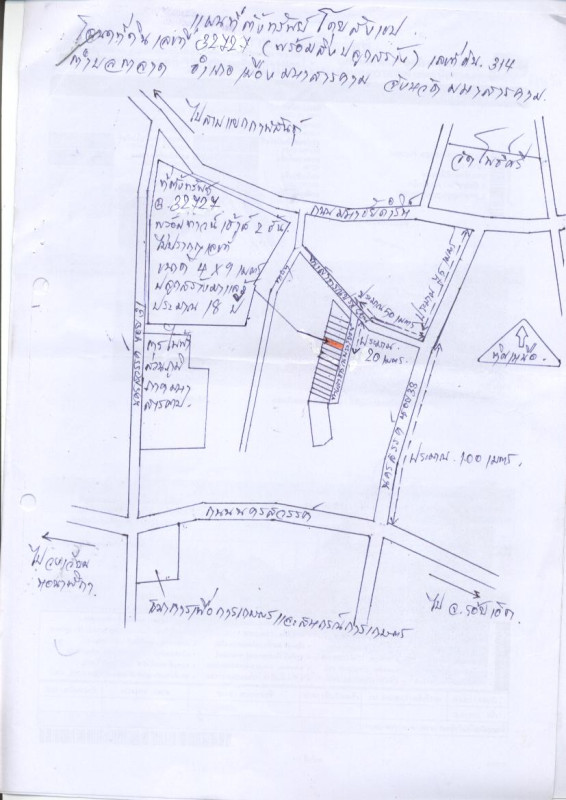 แผนที่ตั้งทรัพย์ โดยสังเขป
โฉนดที่ดิน เลขที่ 32727 (พร้อมสิ่งปลูกสร้าง) เลขที่ดิน 314
ตำบลตลาด อำเภอเมืองมหาสารคาม จังหวัดมหาสารคาม
ไปสามแยกกาฬสินธุ์
วัดโพธิ์ศรี
ที่ตั้งทรัพย์
ฉ. 32727
พร้อมทาวน์เฮ้าส์ 2 ชั้น
ไม่ปรากฏเลขที่
ขนาด 4 x 9 เมตร
ปลูกสร้างมาแล้ว
ประมาณ 18 ปี
ซอย
ประมาณ 50 เมตร
ประมาณ
20 เมตร.
ทิศเหนือ
การไฟฟ้า
ส่วนภูมิ
ภาคมหา
สารคาม
นครสวรรค์ ซอย 38
ประมาณ 100 เมตร.
ถนนนครสวรรค์
ไปวงเวียน
หอนาฬิกา
ไป จ.ร้อยเอ็ด
ธนาคารเพื่อการเกษตรและสหกรณ์การเกษตร